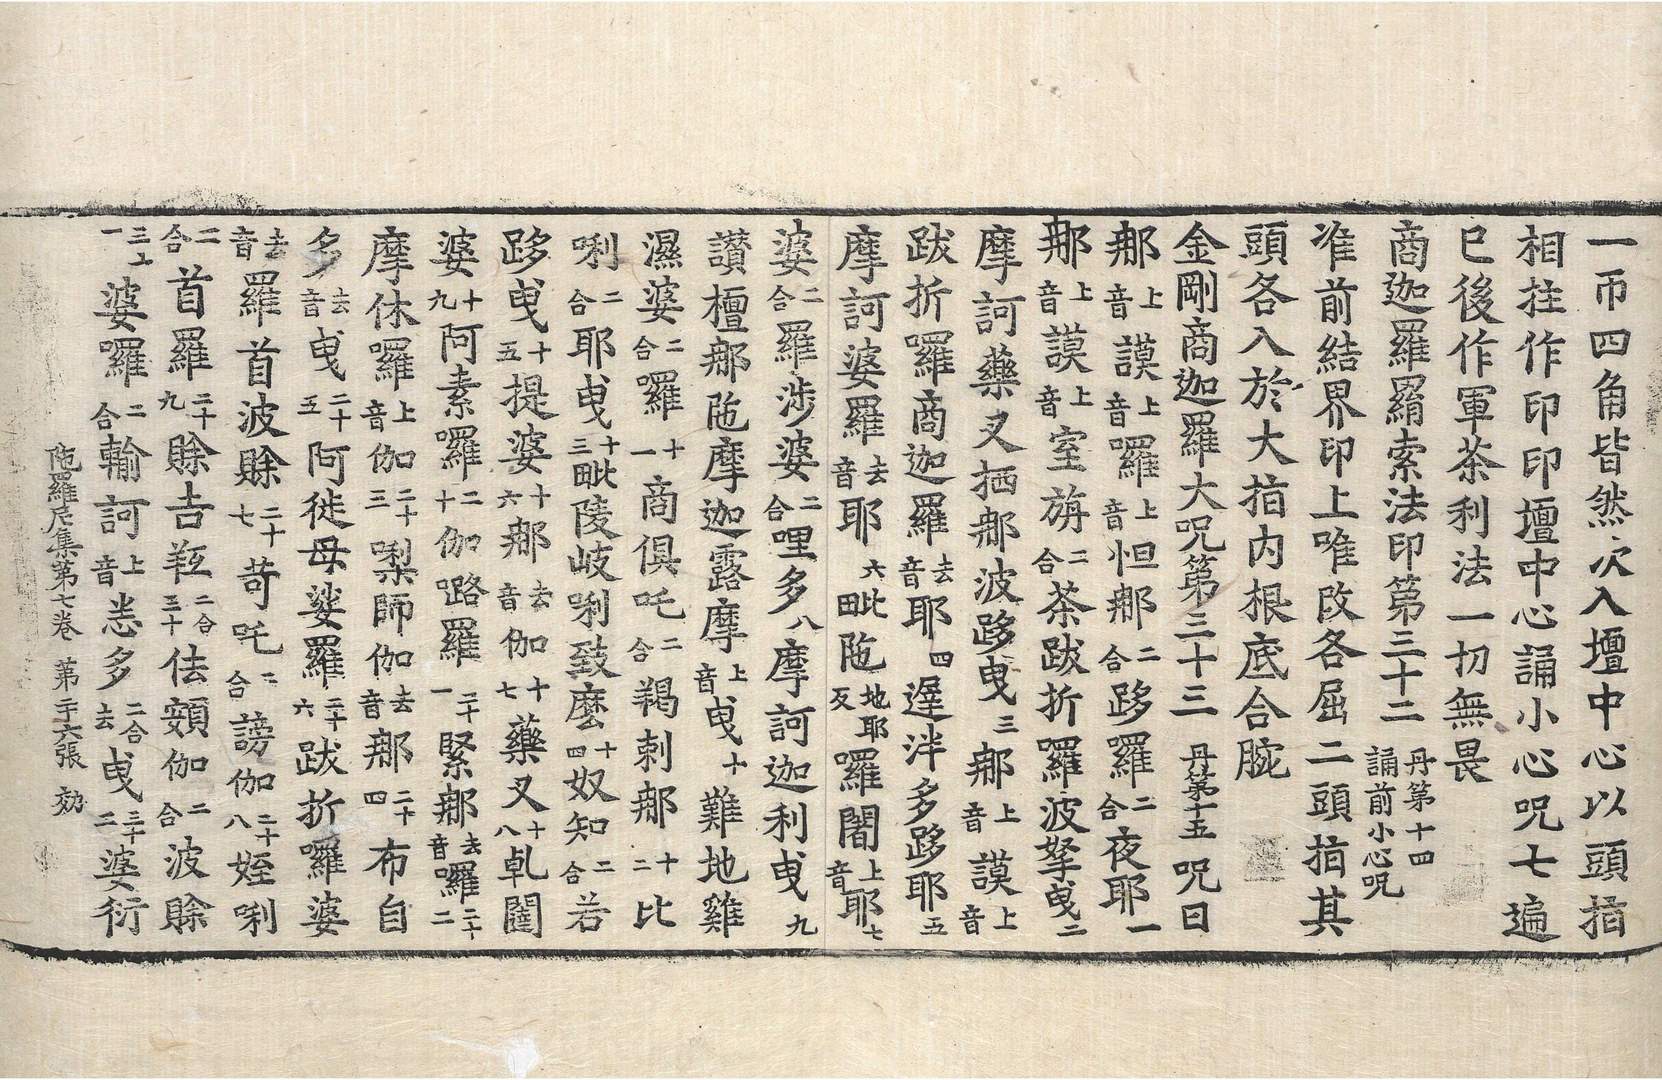 一帀四角皆然次入壇中心以頭指
相拄作印印壇中心誦小心呪七遍
已後作軍荼利法一切無畏
商迦羅羂索法印第三十二 丹第十四誦前小心呪
准前結界印上唯改各屈二頭指其
頭各入於大指内根底合腕
金剛商迦羅大呪第三十三 丹第十五 呪曰
那上音謨上音囉上音怛那二合跢羅二合夜耶一
那上音謨上音室旃二合荼跋折囉波拏曳二
摩訶藥叉栖那波跢曳三那上音謨上音
跋折囉商迦羅去音耶四遅泮多跢耶五
摩訶婆羅去音耶六毗陁地耶反囉闍上音耶七
婆二合羅渉婆二合哩多八摩訶迦利曳九
讃檀那陁摩迦露摩上音曳十難地雞
濕婆二合囉十一商俱吒二合羯剌那十二比
唎二合耶曳十三毗陵岐唎致麽十四奴知二合若
跢曳十五提婆十六那去音伽十七藥叉十八乹闥
婆十九阿素囉二十伽嚕羅二十一緊那去音囉二十二
摩休囉上音伽二十三㗚師伽去音那二十四布自
多去音曳二十五阿徙母娑羅二十六跋折囉婆
去音羅首波賖二十七苛吒二合謗伽二十八姪唎
二合首羅二十九賖吉羝二合三十佉頞伽二合波賖
三十一婆囉二合輸訶上音悉多二合去曳三十二婆衍
陁羅尼集第七卷 第二十六張 効